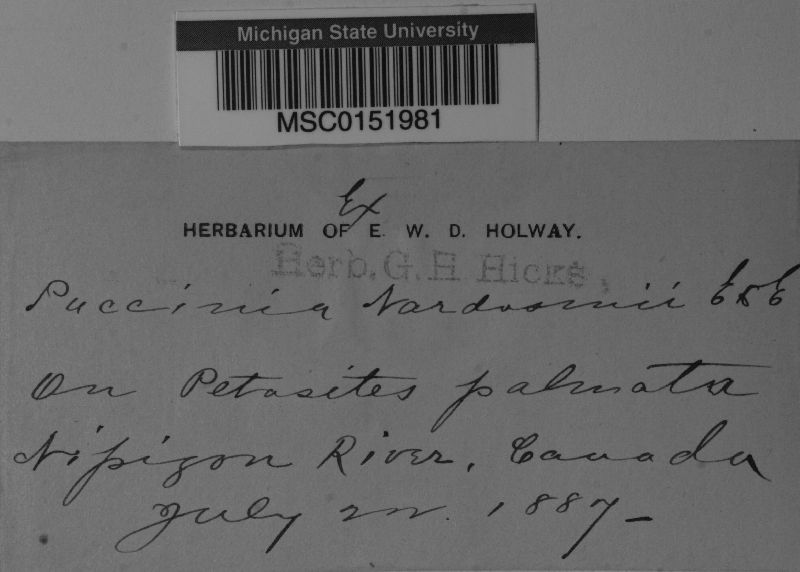 Michigan State University
MSC0151981
Ex
HERBARIUM OF E. W. D. HOLWAY.
Herb. G. H Hicks,
Puccinia Nardosmii E & E
On Petasites palmata
Nipigon River, Canada
July 22. 1887-